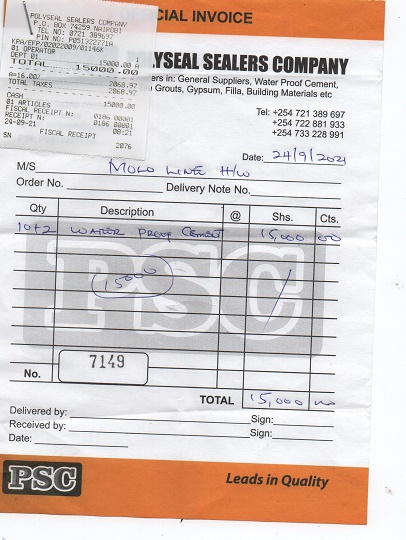 POLYSEAL SEALERS COMPANY
P.O. BOX 74259 NAIROBI
TEL NO: 0721 389697
PIN NO: P051322771A
01 OPERATOR
DEPT 01
1
15000.00 A
TOTAL 15000.00
A=16.00%
2068.97
TOTAL TAXES 2068.97
CASH 15000.00
01 ARTICLES
FISCAL RECEIPT N:
RECEIPT N:
24-09-21 08:21
FISCAL RECEIPT
SN 2076
CIAL INVOICE
LYSEAL SEALERS COMPANY
ers in: General Suppliers, Water Proof Cement,
Grouts, Gypsum, Filla, Building Materials etc
Tel: +254 721 389 697
+254 722 881 933
+254 733 228 991
Date: 24/9/2021
M/S MOLO LINE H/W
Order No. Delivery Note No.
Qty Description @ Shs. Cts.
10+2 WATER PROOF CEMENT 15,000 00
15000
PSC
No. 7149
TOTAL 15,000 00
Delivered by: Sign:
Received by: Sign:
Date:
PSC Leads in Quality